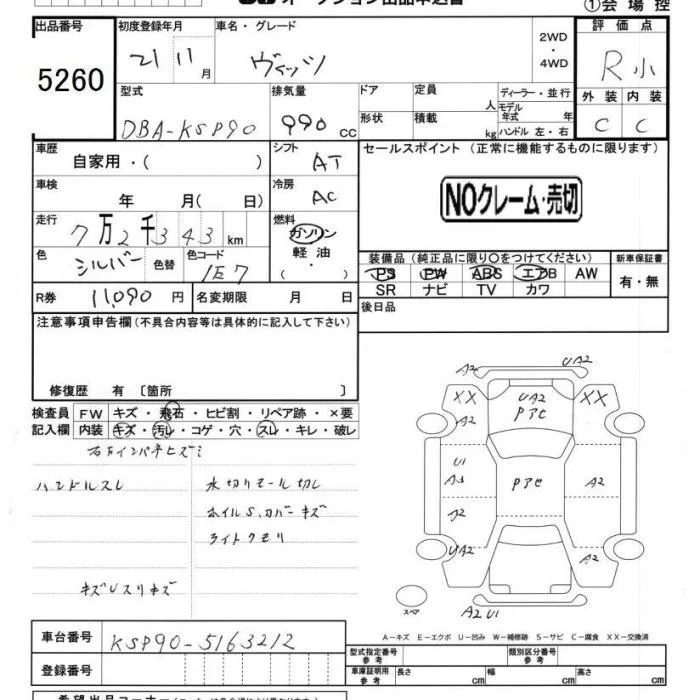 オークション出品申込書
①会場控
出品番号 5260
初度登録年月 21 11月
車名・グレード ヴィッツ
2WD・4WD
評価点 R小
型式 DBA-KSP90
排気量 990 cc
ドア
定員 人
ディーラー・並行
形状
積載 kg
モデル年式 年
ハンドル 左・右
外装 C
内装 C
車歴 自家用・( )
シフト AT
セールスポイント (正常に機能するものに限ります)
NOクレーム・売切
車検 年 月( 日)
冷房 AC
走行 7万2千343km
燃料 ガソリン・軽油・( )
色 シルバー
色替
色コード 1E7
装備品(純正品に限り〇をつけてください)
新車保証書
PS PW ABS エアB AW
有・無
SR ナビ TV カワ
R券 11,090円
名変期限 月 日
後日品
注意事項申告欄(不具合内容等は具体的に記入して下さい)
修復歴 有 〔箇所 〕
検査員記入欄
FW キズ・飛石・ヒビ割・リペア跡・×要
内装 キズ・汚レ・コゲ・穴・スレ・キレ・破レ
ハンドルスレ
水切りモール切レ
ホイルS.カバーキズ
ライトクモリ
キズUスリキズ
A2 UA2
XX UA2 XX
Pアセ
U1
A3 Pアセ A2
A2
UA2 A2
スペア
A2 U1
A-キズ E-エクボ U-凹み W-補修跡 S-サビ C-腐食 XX-交換済
車台番号 KSP90-5163212
登録番号
型式指定番号 参考
類別区分番号 参考
車庫証明用 参考
長さ cm
幅 cm
高さ cm